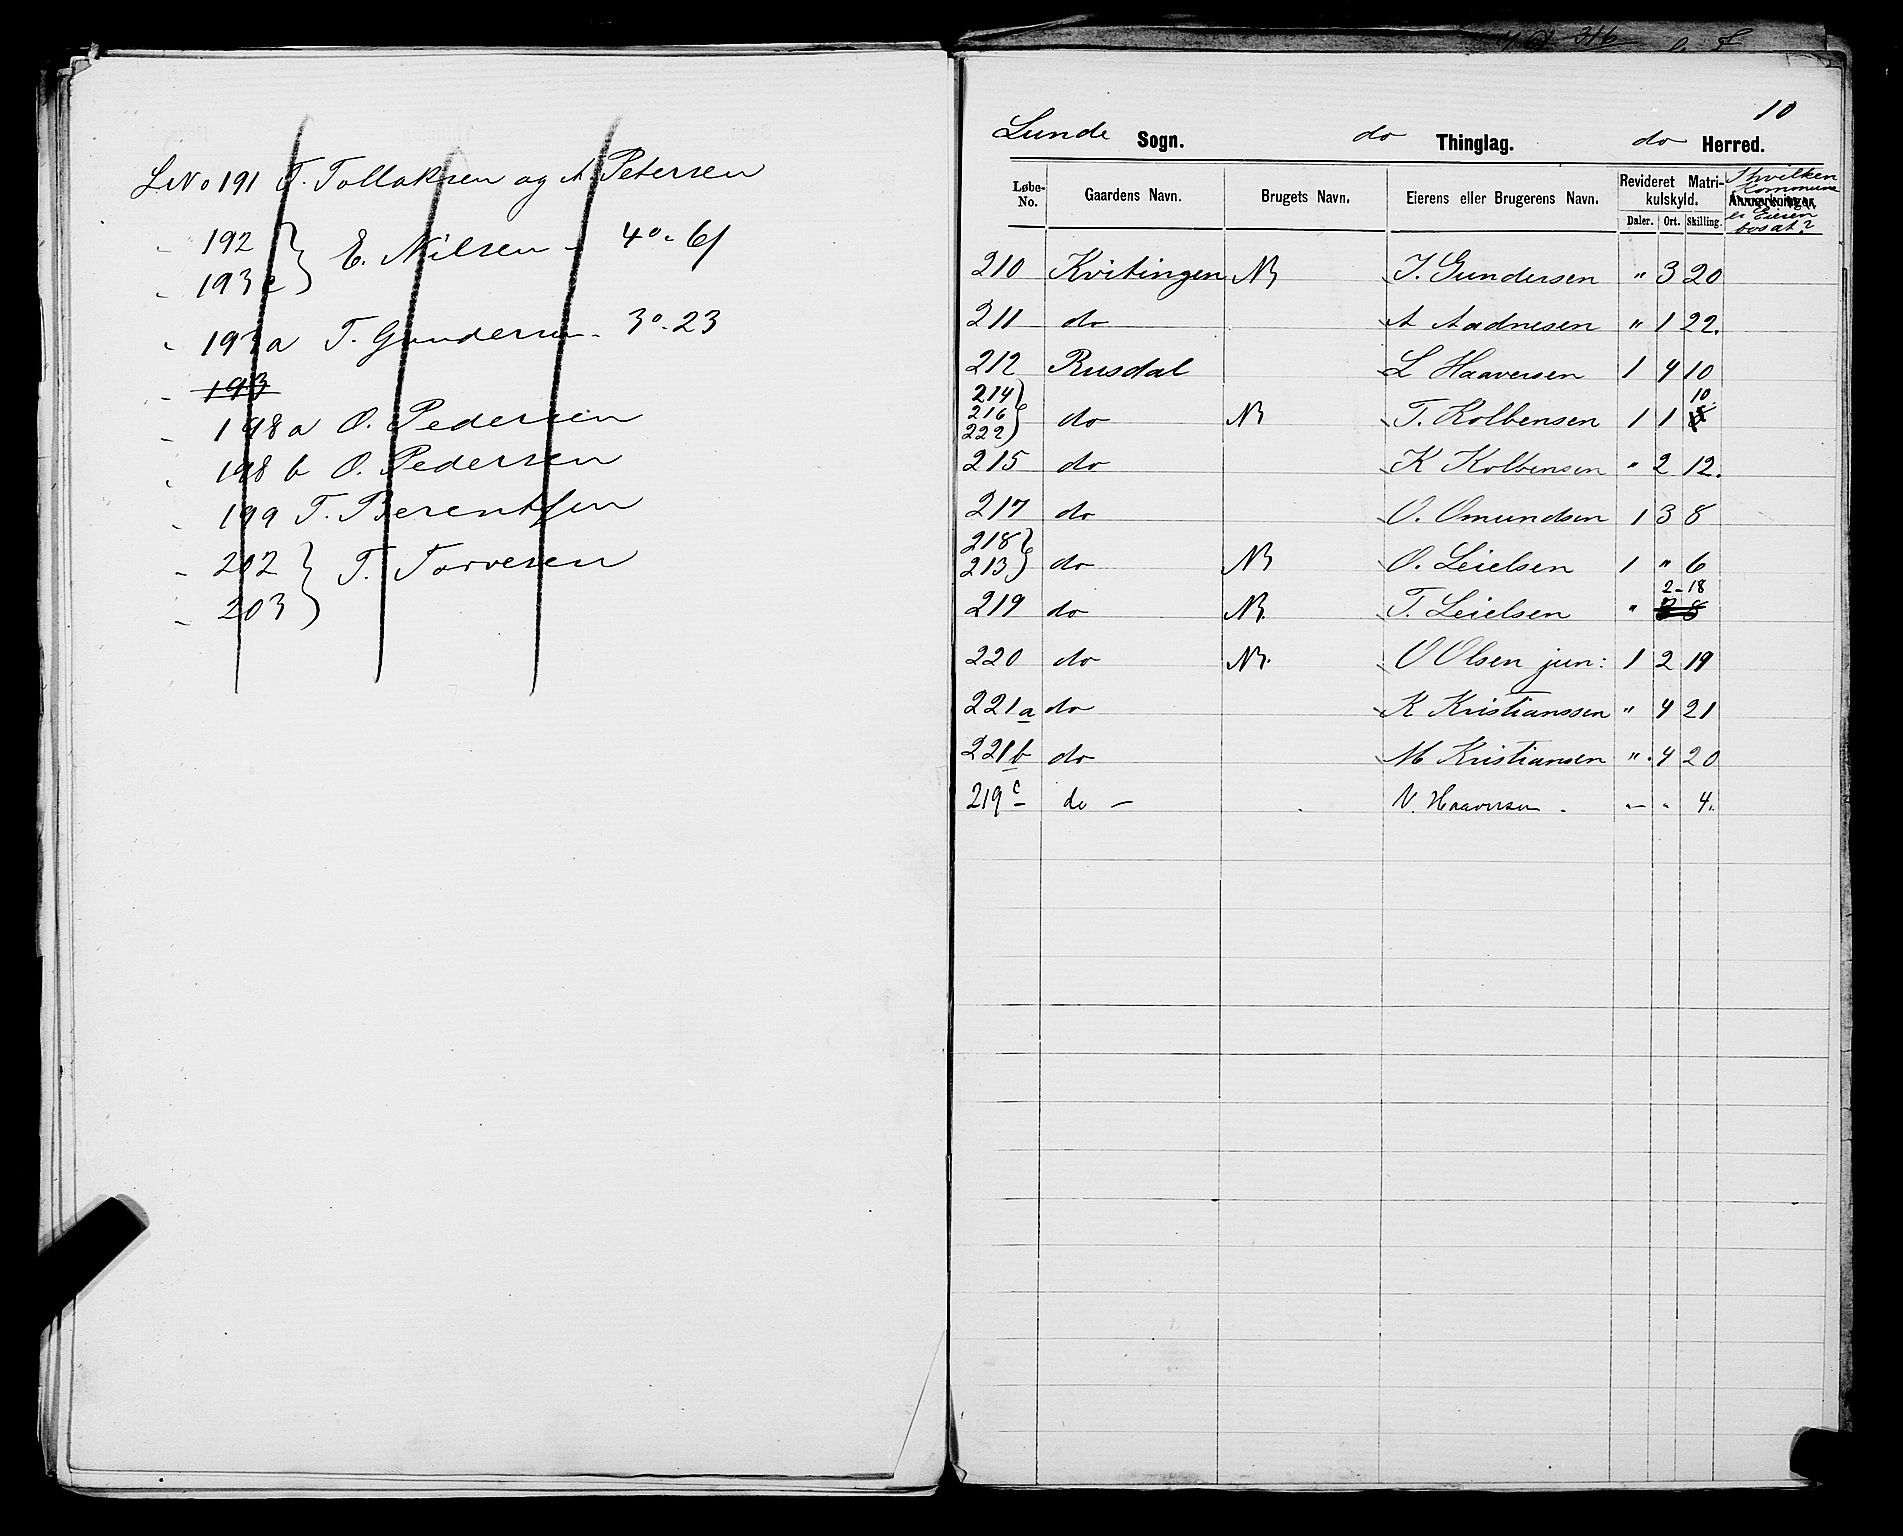 LNo 191 T. Tollaksen og A. Petersen
" 192 } E. Nilsen - 4o " 6/
" 193c }
" 193a T. Gundersen - 3o - 23
" 193
" 198a O. Pedersen
" 198b O. Pedersen
" 199 T. Berentsen
" 202 } T. Torvesen
" 203 }
316
10
Lunde Sogn. do Thinglag. do Herred.
Løbe-No. Gaardens Navn. Brugets Navn. Eierens eller Brugerens Navn. Revideret Matrikulskyld. Daler. Ort. Skilling. Anmærkninger. I hvilken Kommune er Eieren bosat?
210 Kvitingen NB I. Gundersen " 3 20
211 do A Aadnesen " 1 22.
212 Rusdal L Haaversen 1 4 10
214 } 216 } 222 } do NB T. Kolbensen 1 1 10.
215 do K Kolbensen " 2 12.
217 do O. Omundsen 1 3 8
218 } 213 } do NB O. Leielsen 1 " 6
219 do NB. T. Leielsen " 2-18
220 do NB. O Olsen jun: 1 2 19
221a do K Kristianssen " 4 21
221b do M Kristiansen " 4 20
219c do - N. Haaversen - " " 4.